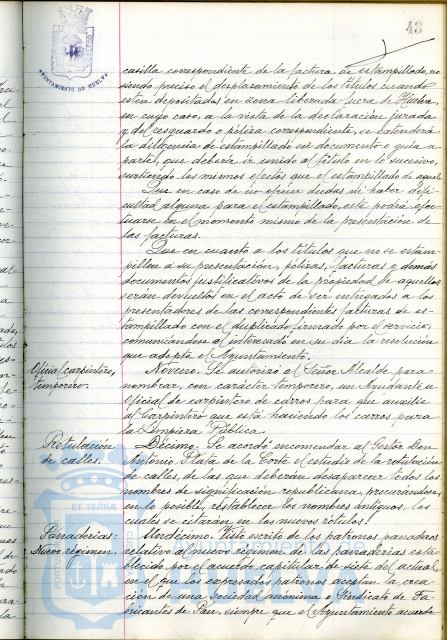 43
AYUNTAMIENTO DE HUELVA
casilla correspondiente de la factura de estampillado, no
siendo preciso el desplazamiento de los títulos cuando
estén depositados en zona liberada fuera de Huelva
en cuyo caso, a la vista de la declaración jurada
y del resguardo o póliza correspondiente, se extenderá
la diligencia de estampillado en documento o guía a
parte, que deberá ir unido al título en lo sucesivo,
surtiendo los mismos efectos que el estampillado de aquel.
Que en caso de no ofrecer dudas, ni haber difi
cultad alguna para el estampillado, este podrá efec
tuarse en el momento mismo de la presentación de
las facturas.
Que en cuanto a los títulos que no se estam
pillen a su presentación, pólizas, facturas y demás
documentos justificativos de la propiedad de aquellos
serán devueltos en el acto de ser entregados a los
presentadores de las correspondientes facturas de es-
tampillado con el duplicado firmado por el servicio,
comunicándose al interesado en su día la resolución
que adopte el Ayuntamiento.
Oficial carpintero,
temporero.
Noveno. Se autorizó al Señor Alcalde para
nombrar, con carácter temporero, un Ayudante u
oficial de carpintero de carros para que auxilie
al Carpintero que está haciendo los carros para
la Limpieza Pública.
Rotulación
de calles.
Décimo. Se acordó encomendar al Gestor Don
Antonio Plata de la Corte el estudio de la rotulación
de calles, de las que deberán desaparecer todos los
nombres de significación republicana, procurándose,
en lo posible, restablecer los nombres antiguos, los
cuales se citarán en los nuevos rótulos.
Panaderías:
Nuevo régimen.
Undécimo. Visto escrito de los patronos panaderos
relativo al nuevo régimen de las panaderías esta-
blecido por el acuerdo capitular de siete del actual,
en el que los expresados patronos aceptan la crea
ción de una Sociedad anónima o Sindicato de Fa
bricantes de Pan, siempre que el Ayuntamiento acuerde